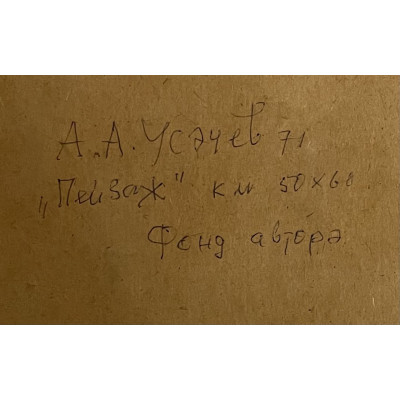 А.А. Усачев 71
„Пейзаж" км 50х60
Фонд автора